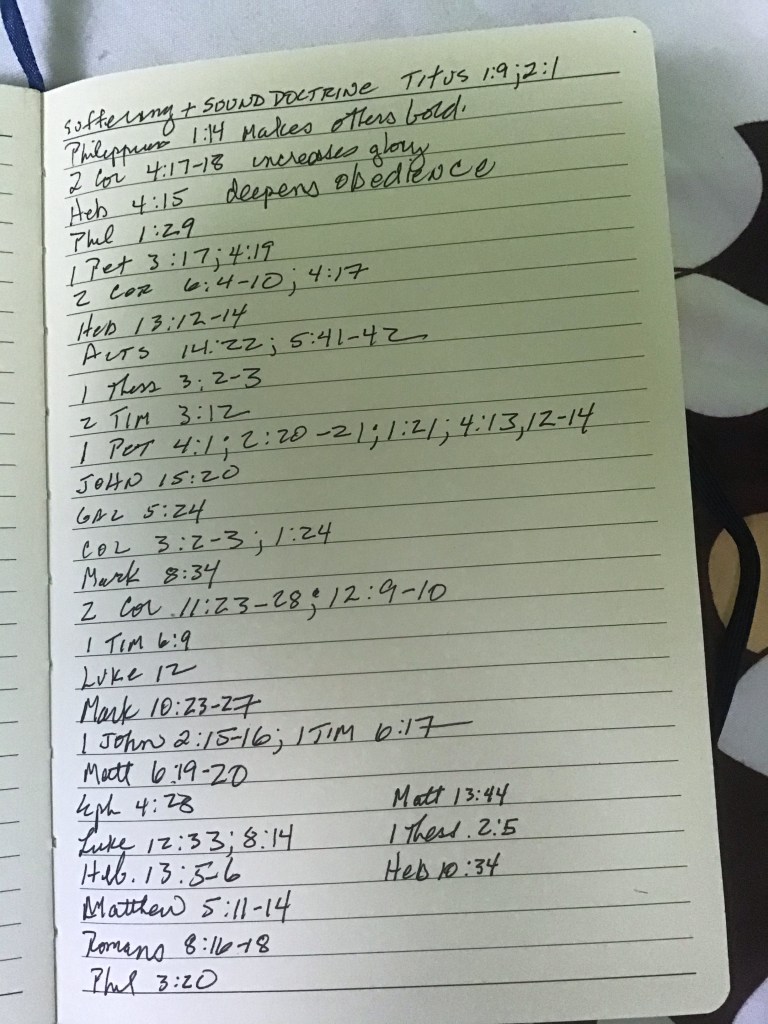 Suffering + SOUND DOCTRINE Titus 1:9; 2:1
Philippians 1:14 Makes others bold.
2 Cor 4:17-18 increases glory
Heb 4:15 deepens obedience
Phil 1:29
1 Pet 3:17; 4:19
2 COR 6:4-10; 4:17
Heb 13:12-14
ACTS 14:22; 5:41-42
1 Thess 3:2-3
2 TIM 3:12
1 PET 4:1; 2:20-21; 1:21; 4:13, 12-14
JOHN 15:20
GAL 5:24
COL 3:2-3; 1:24
Mark 8:34
2 Cor 11:23-28; 12:9-10
1 TIM 6:9
LUKE 12
Mark 10:23-27
1 John 2:15-16; 1 TIM 6:17
Matt 6:19-20
Eph 4:28 Matt 13:44
Luke 12:33; 8:14 1 Thess. 2:5
Heb. 13:5-6 Heb 10:34
Matthew 5:11-14
Romans 8:16-18
Phil 3:20